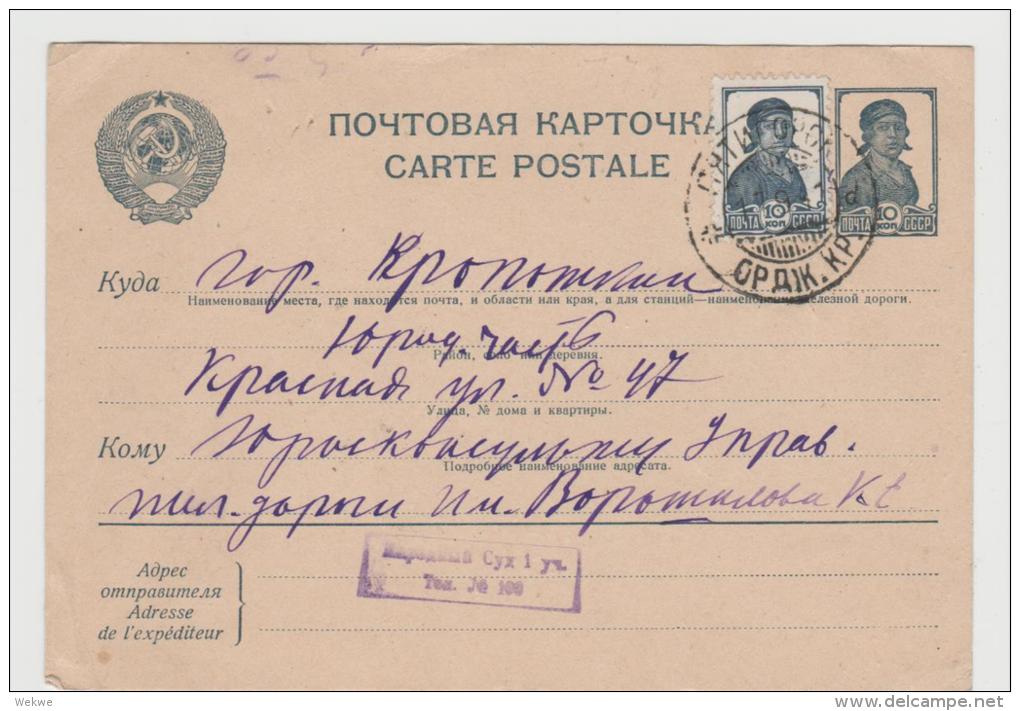 ПОЧТОВАЯ КАРТОЧКА
CARTE POSTALE
ПЯТИГОРСК
ОРДЖ. КР.
ПОЧТА 10 КОП СССР
ПОЧТА 10 КОП СССР
Куда гор. Кропоткин
Наименование места, где находится почта, и области или края, а для станций—наименование железной дороги.
Юрид. часть
Район, село или деревня.
Красная ул. № 47
Улица, № дома и квартиры.
Кому Юрисконсульту Управ.
Подробное наименование адресата.
жел. дороги им. Ворошилова
Народный Суд 1 уч.
Тел. № 100
Адрес
отправителя
Adresse
de l'expéditeur
Wekwe
www.delcampe.net